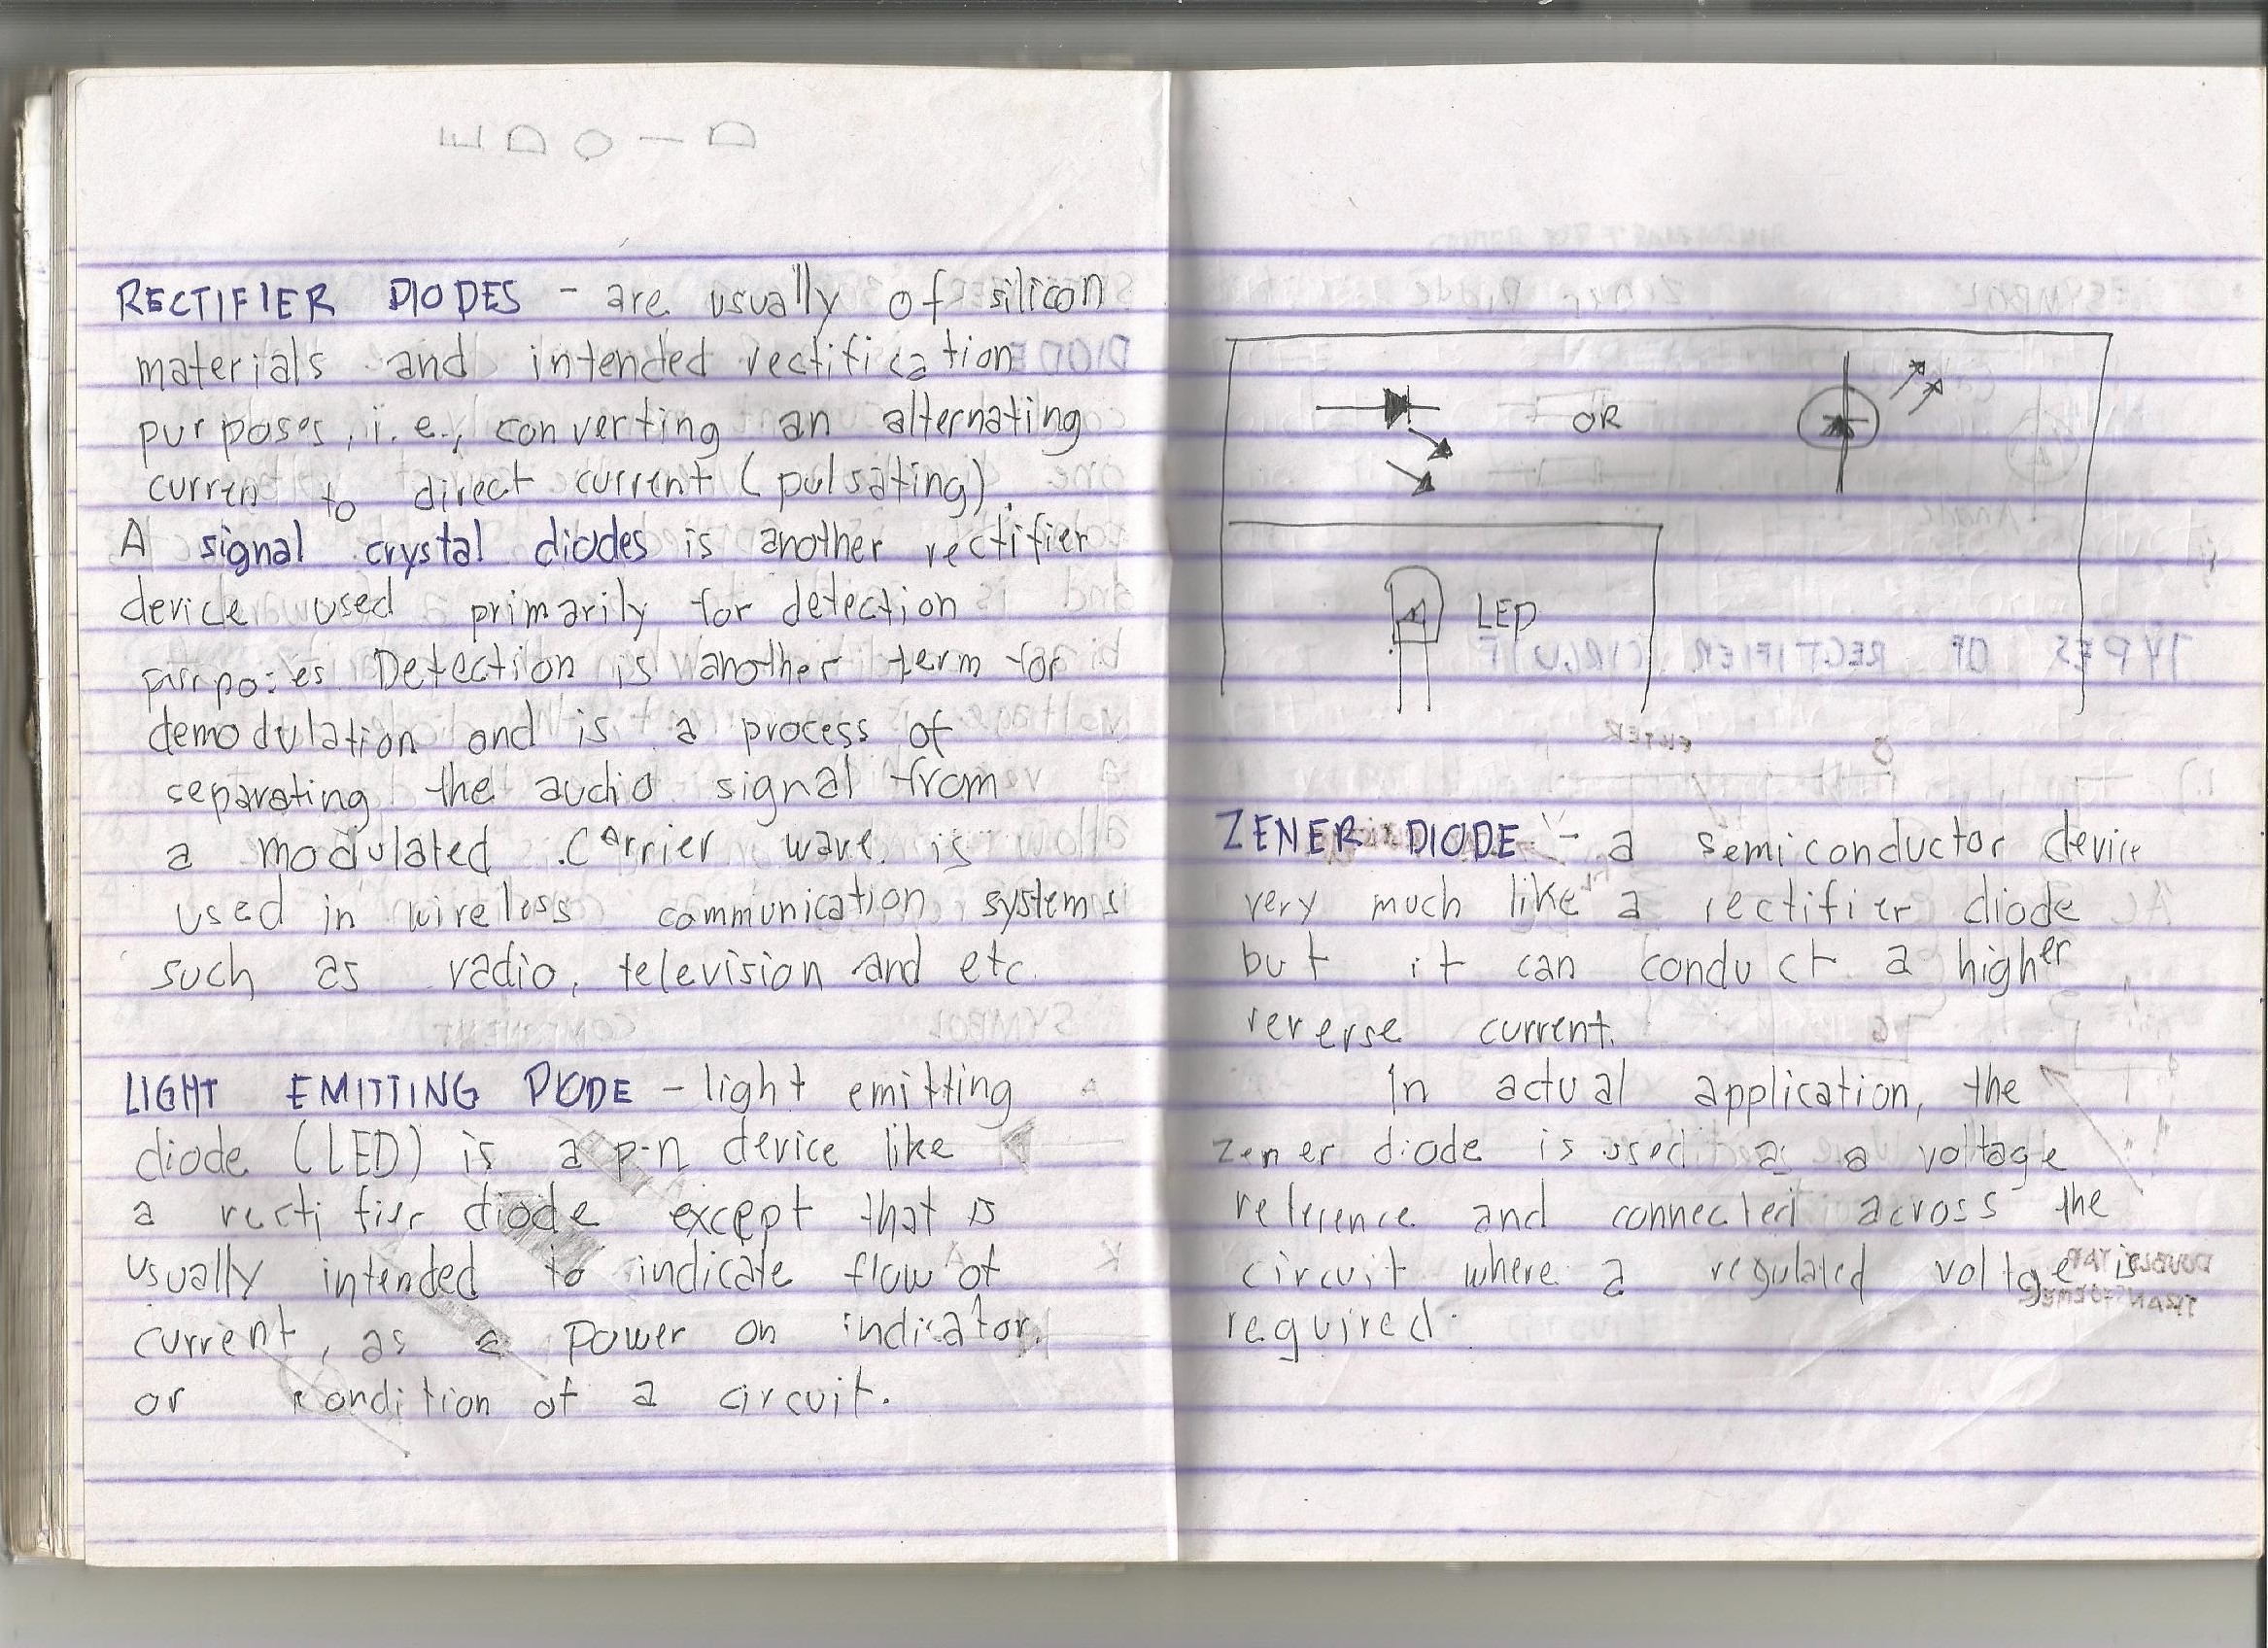 RECTIFIER DIODES - are usually of silicon
materials and intended rectification
purposes, i.e., converting an alternating
curren to direct current (pulsating).
A signal crystal diodes is another rectifier
device used primarily for detection
purposes Detection is another term for
demodulation and is a process of
separating the audio signal from
a modulated carrier wave. is
used in wireless communication systems
such as radio, television and etc.
LIGHT EMITTING DIODE - light emitting
diode (LED) is a p-n device like
a rectifier diode except that is
usually intended to indicate flow of
current, as a power on indicator.
or condition of a circuit.
OR
LED
ZENER DIODE - a semiconductor device
very much like a rectifier diode
but it can conduct a higher
reverse current.
In actual application, the
zener diode is used as a voltage
reference and connected across the
circuit where a regulated voltage is
required.